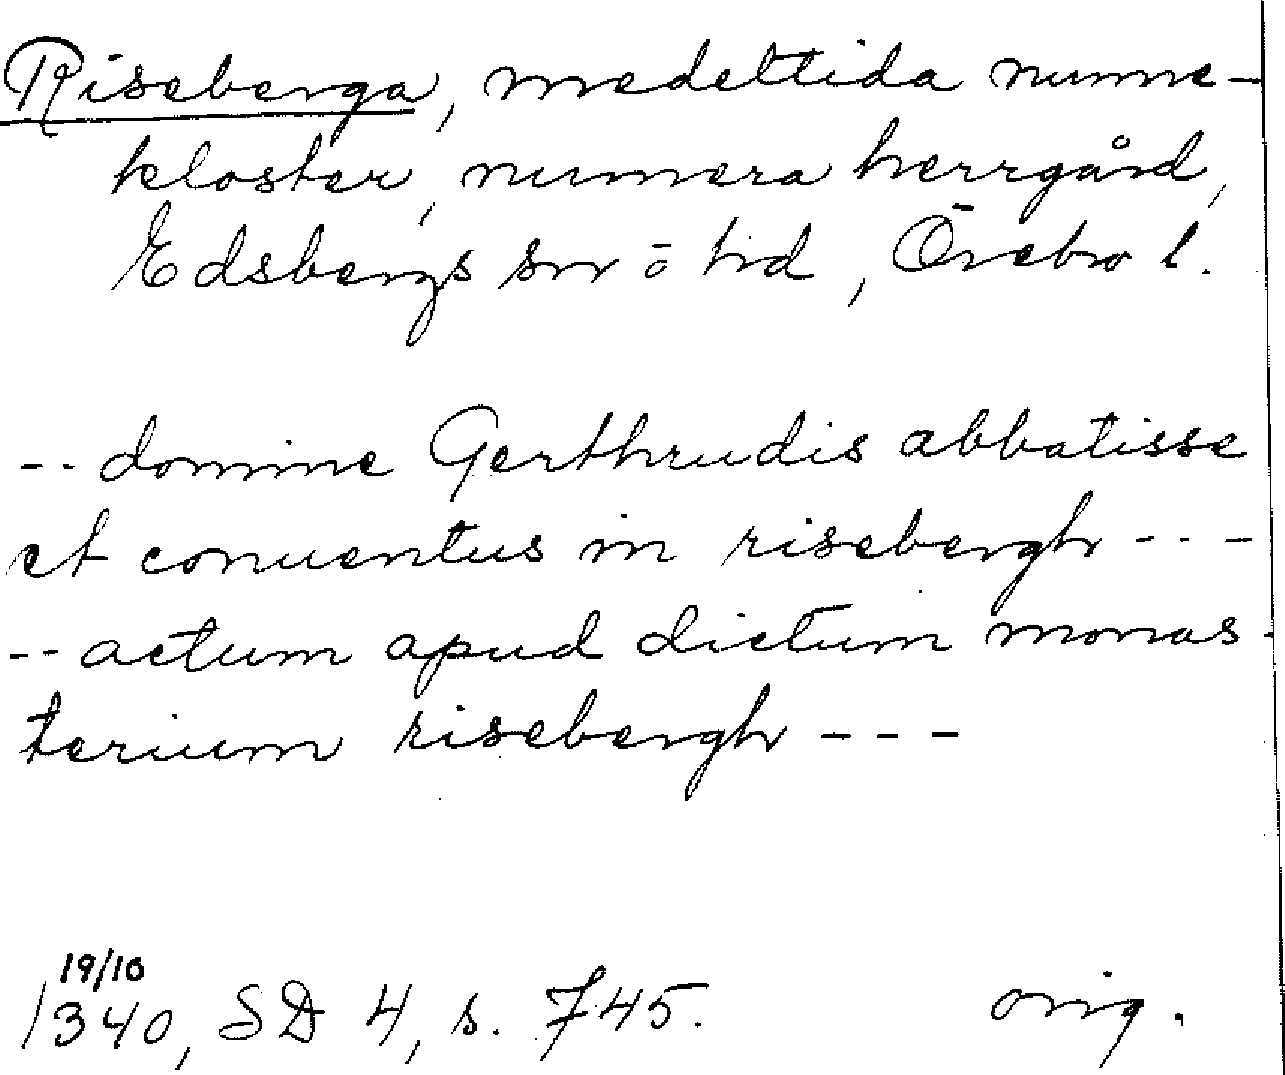 Riseberga, medeltida nunne-
kloster, numera herrgård,
Edsbergs sn o hd, Örebro l.
-- domine Gerthrudis abbatisse
et conuentus in risebergh ---
-- actum apud dictum monas-
terium risebergh ---
19/10
1340, SD 4, s. 745. orig.